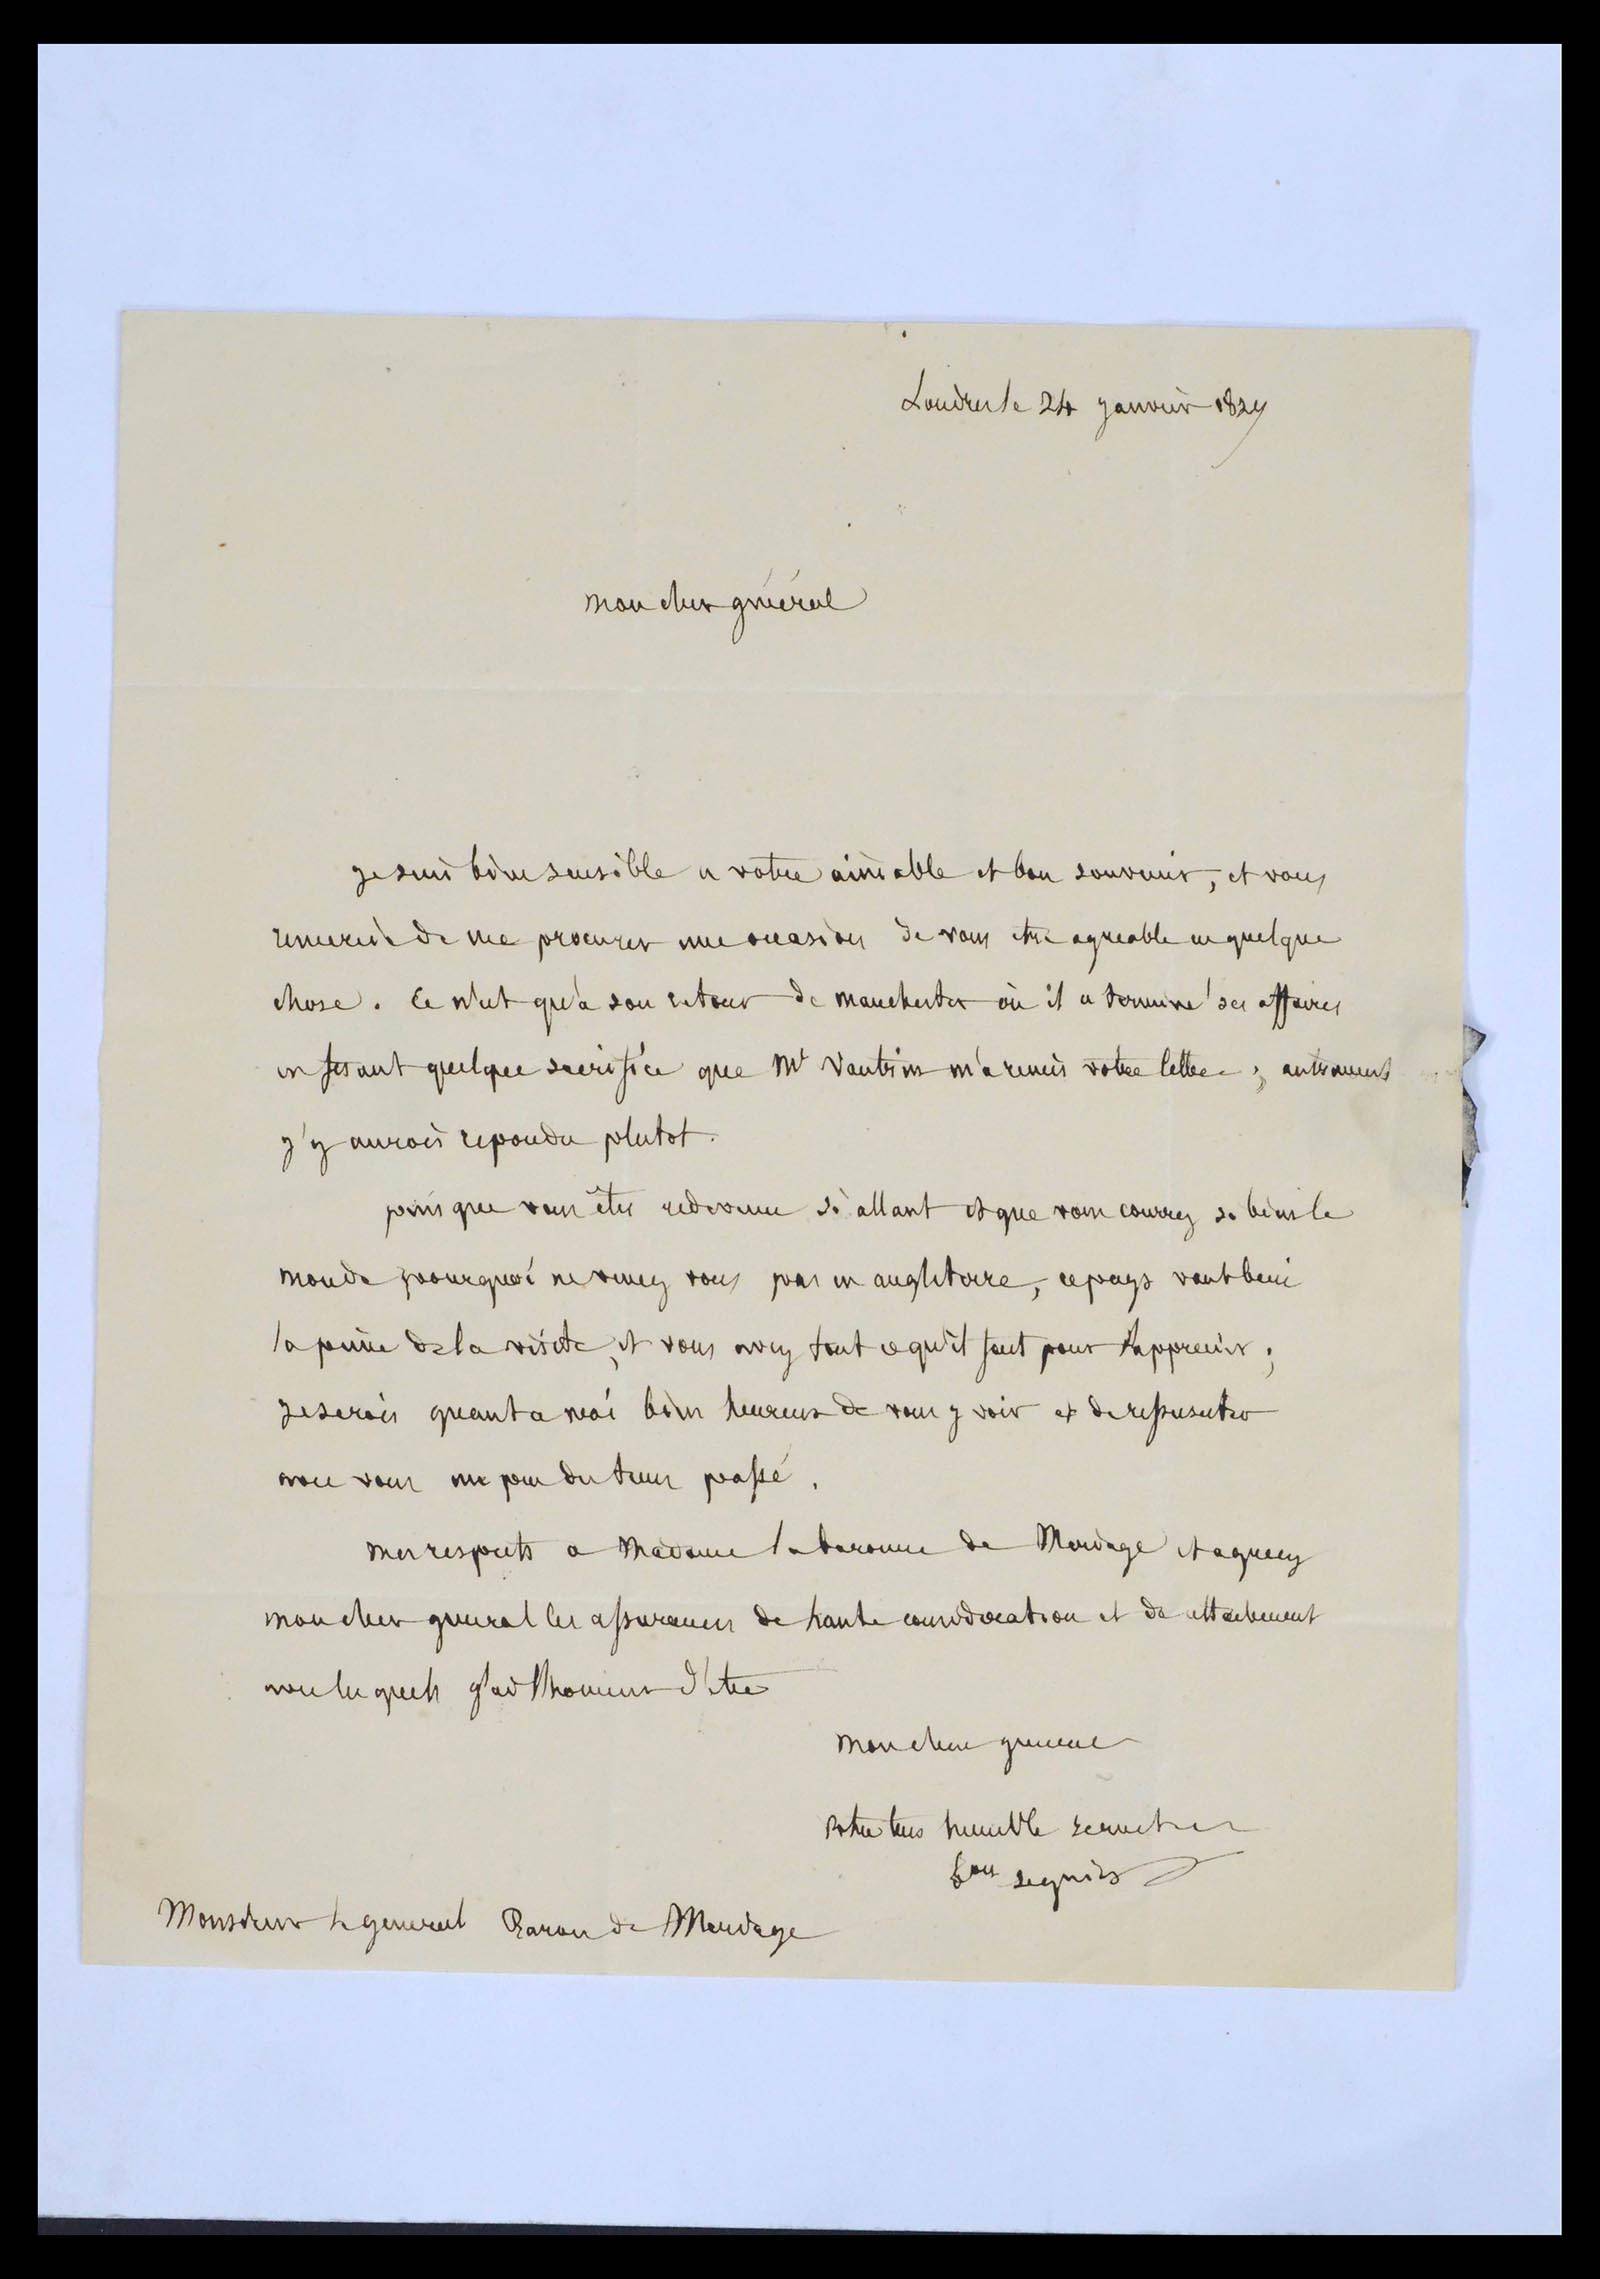 Londres le 24 janvier 1829
mon cher général
je suis bien sensible a votre aimable et bon souvenir, et vous
remercie de me procurer une occasion de vous etre agreable en quelque
chose. Ce n'est qu'a son retour de manchester où il a terminé ses affaires
en fesant quelque sacrifice que Mr Vautrin m'a remis votre lettre; autrement
j'y aurois repondu plutot.
puis que vous êtes redevenu si allant et que vous courrez si bien le
monde pourquoi ne venez vous pas en angleterre, ce pays vaut bien
la peine de la visite, et vous avez tout ce qu'il faut pour l'apprecier;
je serois quant a moi bien heureux de vous y voir et de ressusciter
avec vous un peu du tems passé.
mes respects a Madame la baronne de Maridage et agreez
mon cher general les assurances de haute consideration et de attachement
avec lesquels j'ai l'honneur d'etre
mon cher general
votre tres humble serviteur
Bon seguier
Monsieur le general Baron de Maridage